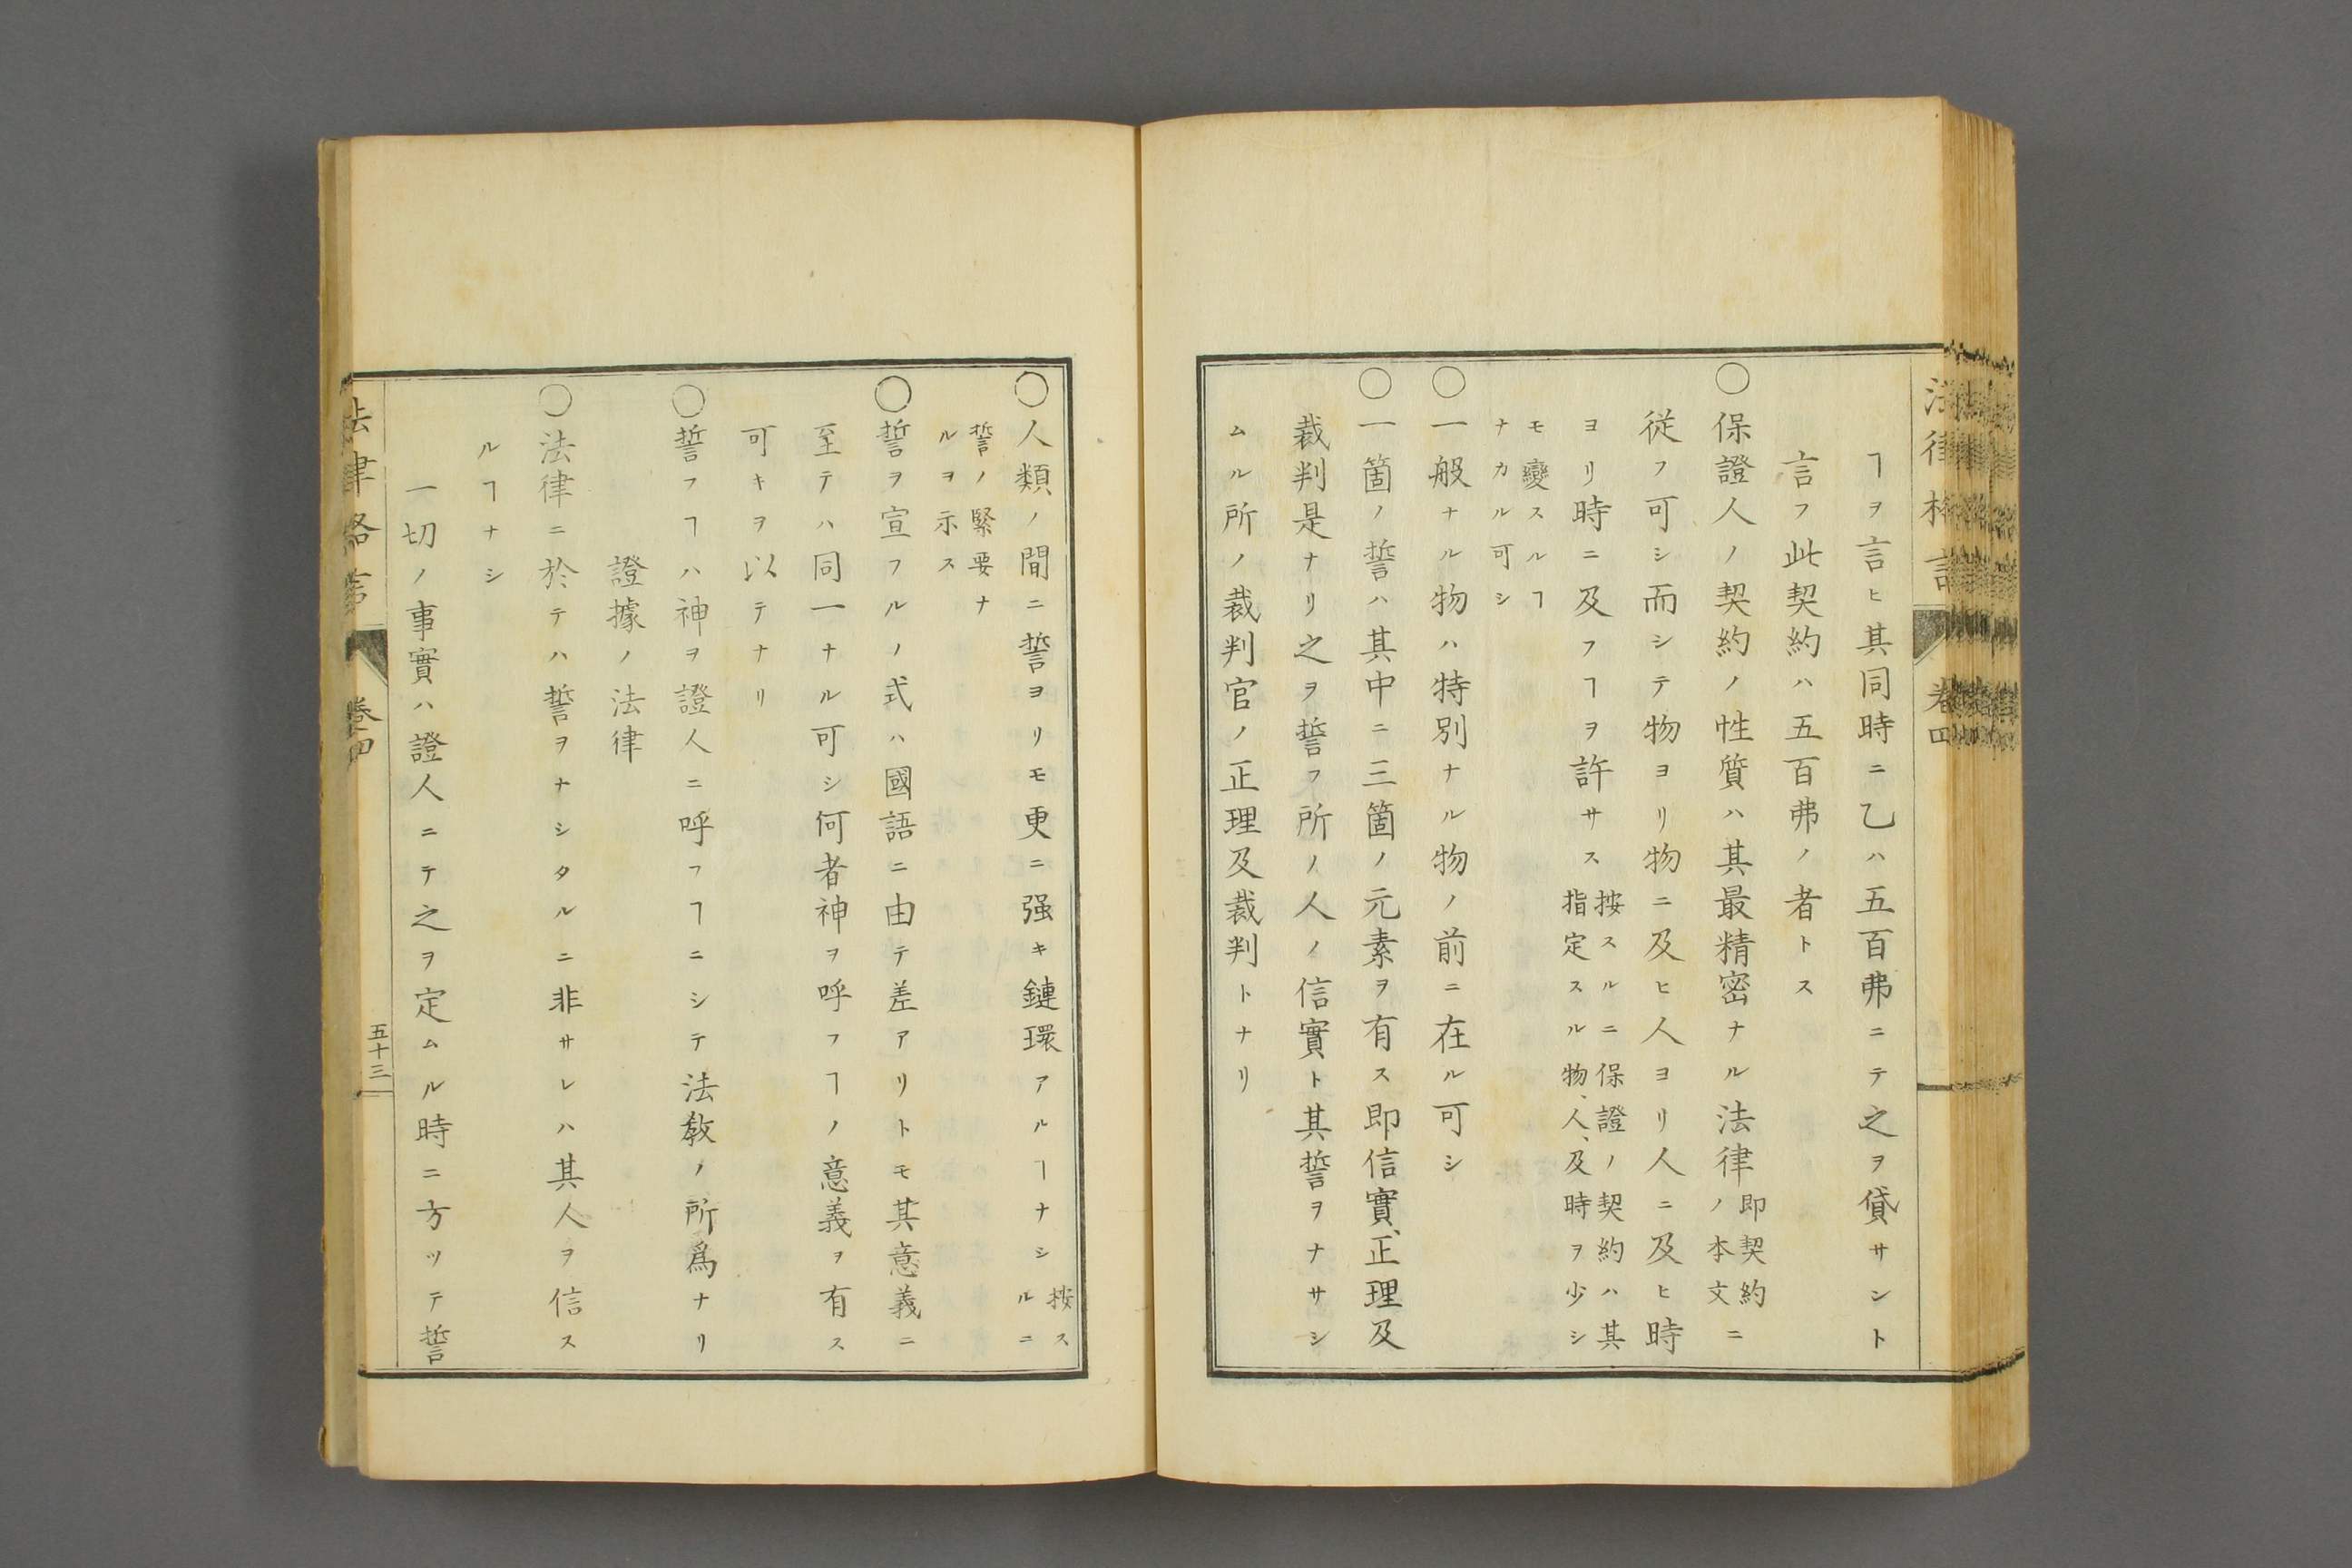 法律格言 巻四
ヿヲ言ヒ其同時ニ乙ハ五百弗ニテ之ヲ貸サント
言フ此契約ハ五百弗ノ者トス
〇保證人ノ契約ノ性質ハ其最精密ナル法律即契約ノ本文ニ
従フ可シ而シテ物ヨリ物ニ及ヒ人ヨリ人ニ及ヒ時
ヨリ時ニ及フヿヲ許サス按スルニ保證ノ契約ハ其指定スル物、人、及時ヲ少シ
モ變スルヿナカル可シ
〇一般ナル物ハ特別ナル物ノ前ニ在ル可シ
〇一箇ノ誓ハ其中ニ三箇ノ元素ヲ有ス即信實、正理及
裁判是ナリ之ヲ誓フ所ノ人ノ信實ト其誓ヲナサシ
ムル所ノ裁判官ノ正理及裁判トナリ
〇人類ノ間ニ誓ヨリモ更ニ强キ鏈環アルヿナシ按スルニ
誓ノ緊要ナルヲ示ス
〇誓ヲ宣フルノ式ハ國語ニ由テ差アリトモ其意義ニ
至テハ同一ナル可シ何者神ヲ呼フヿノ意義ヲ有ス
可キヲ以テナリ
〇誓フヿハ神ヲ證人ニ呼フヿニシテ法教ノ所爲ナリ
證據ノ法律
〇法律ニ於テハ誓ヲナシタルニ非サレハ其人ヲ信ス
ルヿナシ
一切ノ事實ハ證人ニテ之ヲ定ムル時ニ方ツテ誓
法律格言 巻四 五十三